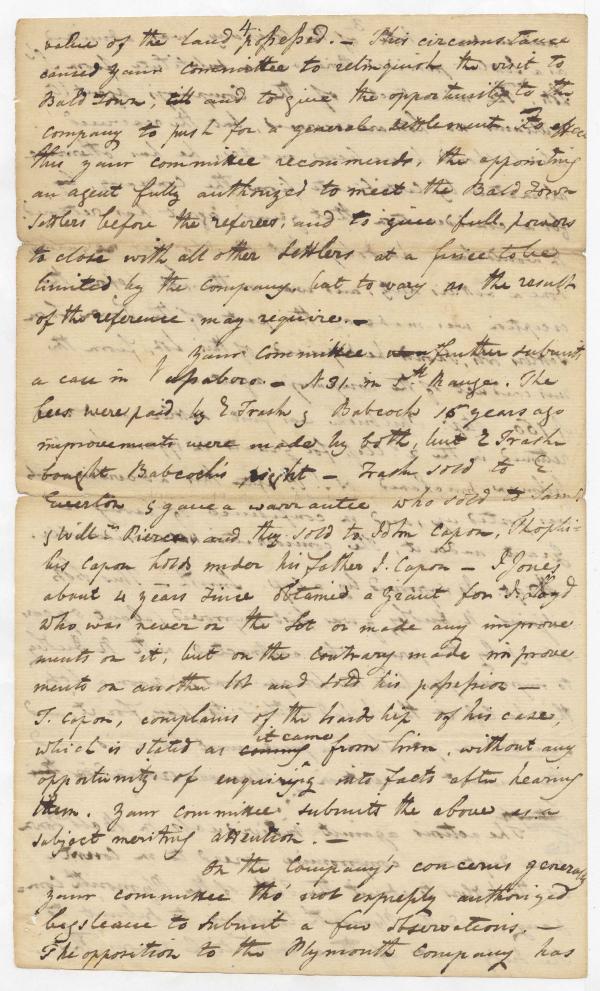 value of the land & possessed. — This circumstance
caused your Committee to relinquish the visit to
Bald Town, till and to give the opportunity to the
Company to push for a general settlement. To effect
this your committee recommends, the appointing
an agent fully authorized to meet the Bald Town
settlers before the referees, and to give full powers
to close with all other settlers at a price to be
limited by the Company, but to vary as the result
of the reference may require. —
Your Committee further submits
a case in Vassaboro. — N 31 in 5th Range. The
fees were paid by E Trask & Babcock 15 years ago
improvements were made by both, but E Trask
bought Babcock's right — Trask sold to E
Everton & gave a warrantee who sold to
& Willm Pierce and they sold to John Capon, Theophi-
lus Capon holds under his father J. Capon — I Jones
about 4 years since obtained a grant for Lloyd
who was never on the Lot or made any improve
ments on it, but on the contrary made improve
ments on another lot and sold his possession —
T. Capon, complains of the hardship of his case,
which is stated as it came from him, without any
opportunity of enquiring into facts after hearing
them. Your Committee submits the above as a
subject meriting attention. —
On the Company's concerns generally
your committee tho' not expressly authorized
begs leave to submit a few observations. —
The opposition to the Plymouth Company has